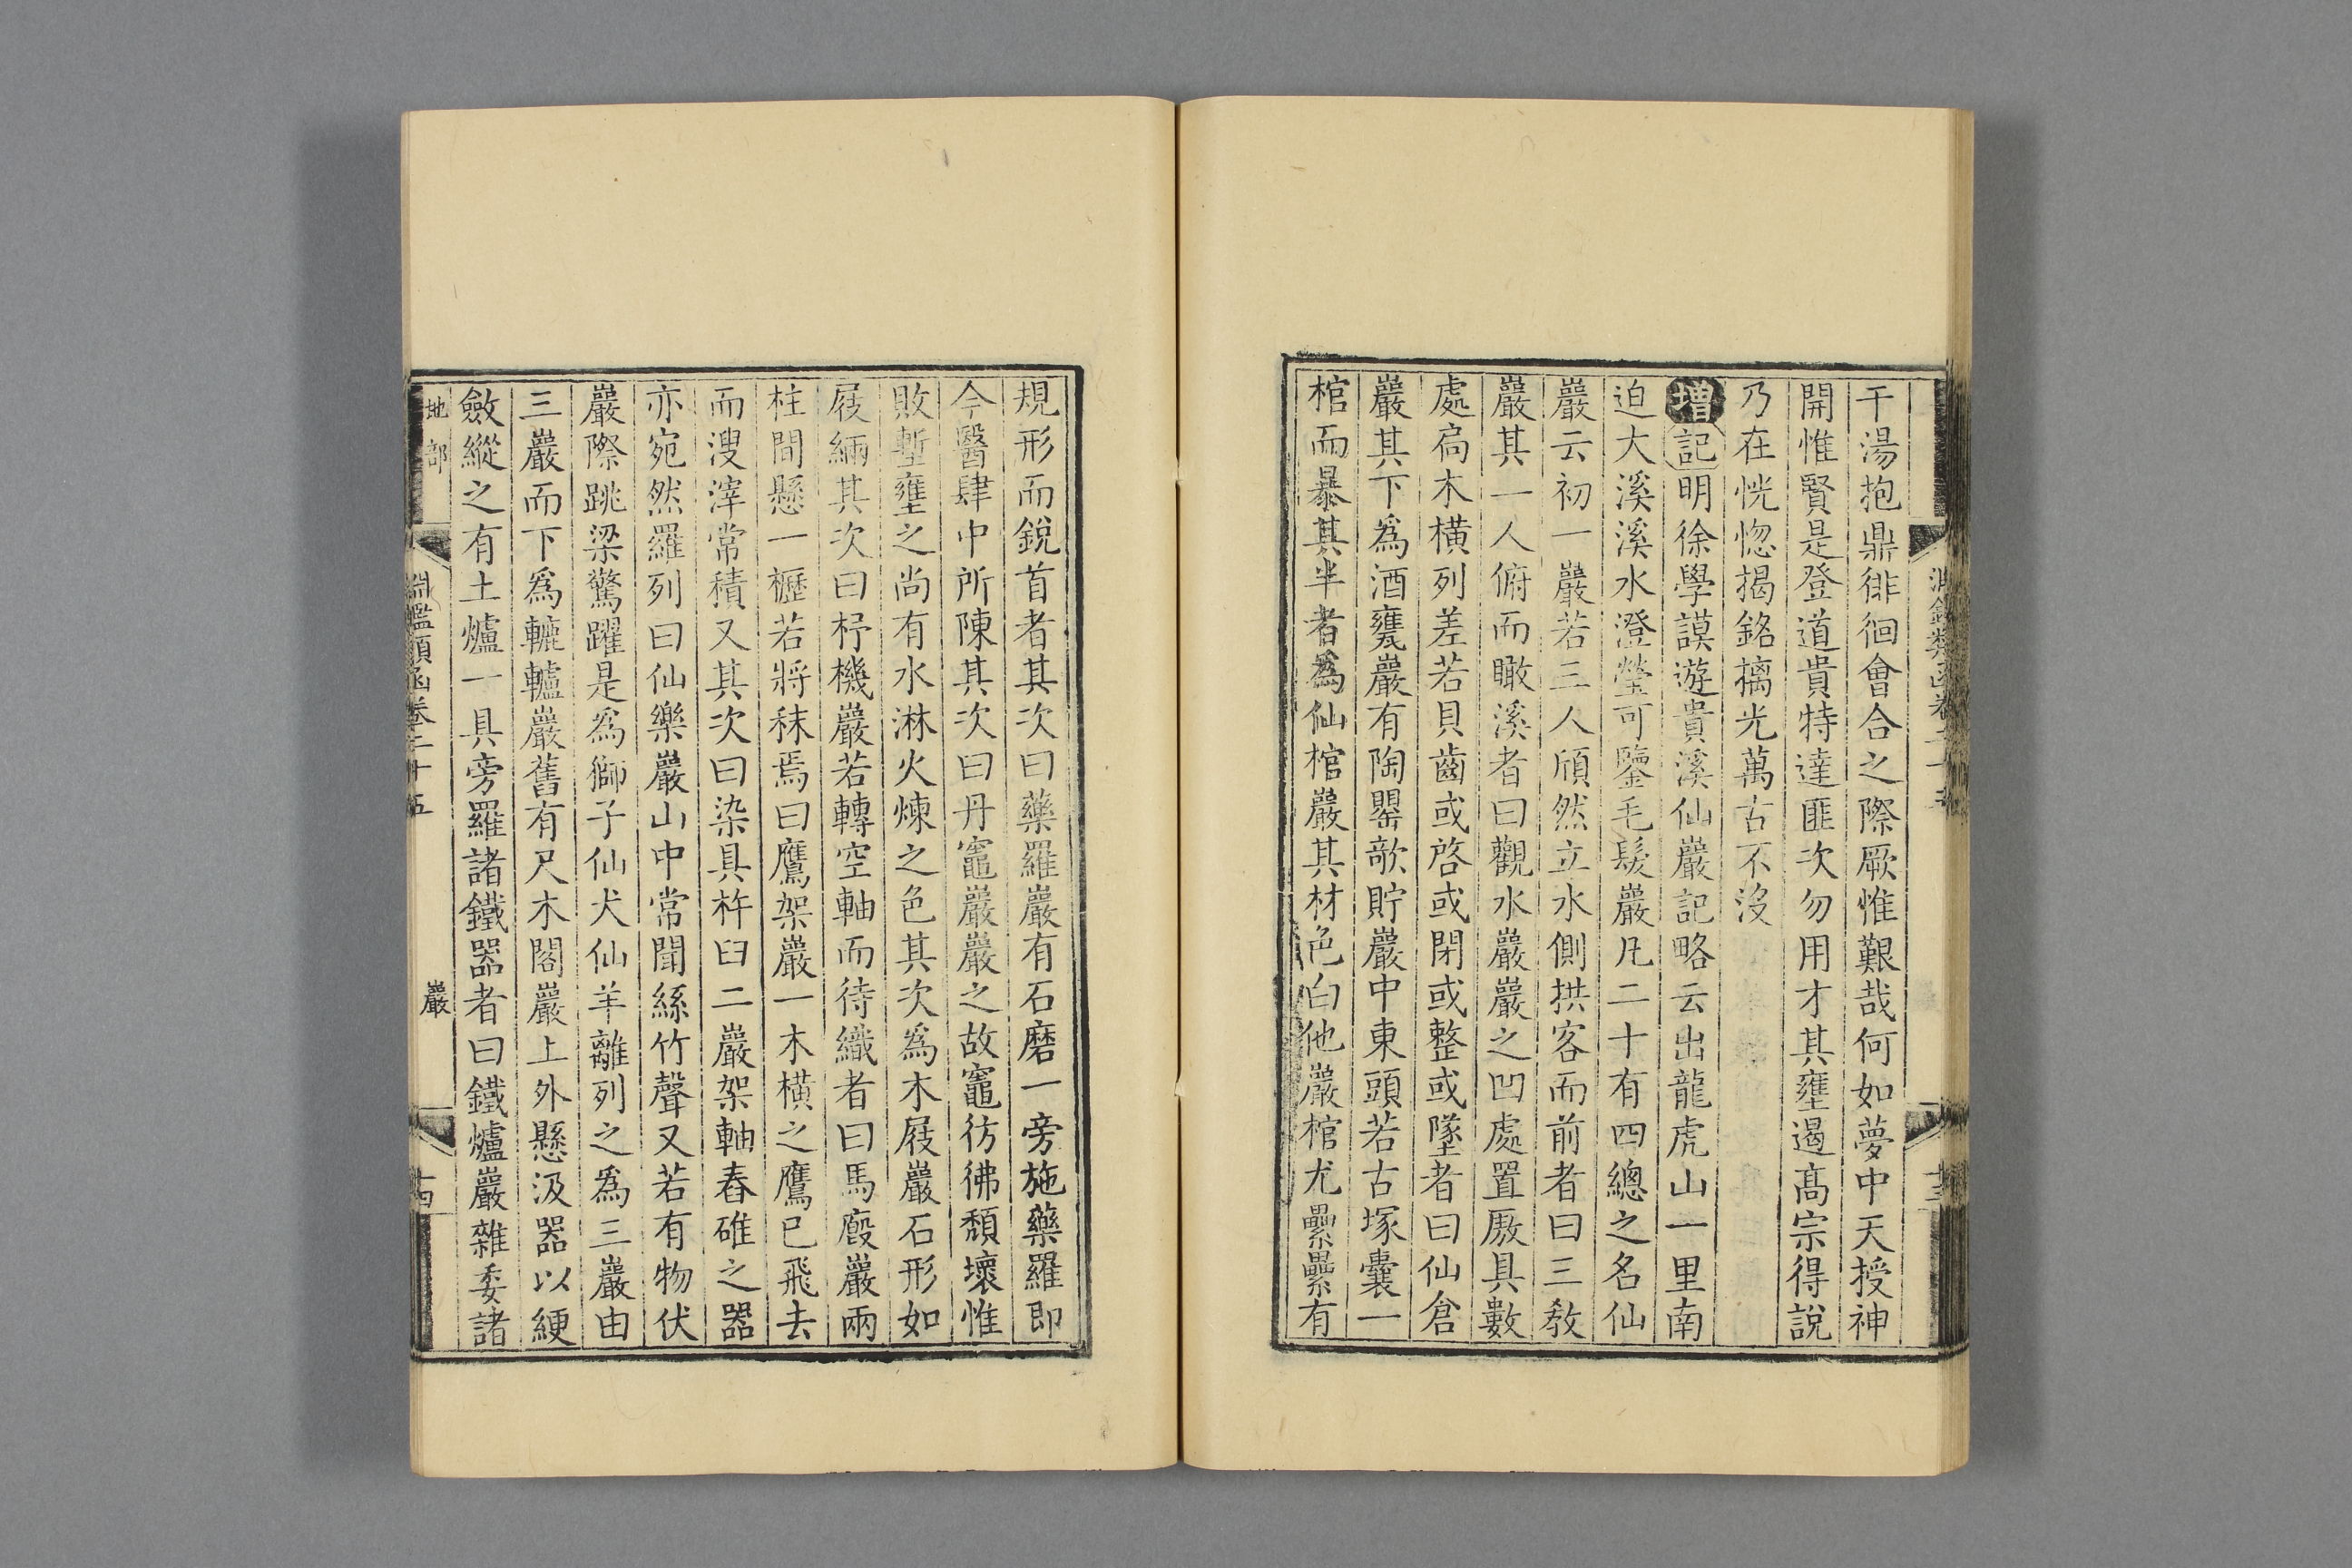 干湯抱鼎徘徊會合之際厥惟艱哉何如夢中天授神
開惟賢是登道貴特達匪次勿用才其壅遏高宗得說
乃在恍惚揭銘摛光萬古不沒
增記明徐學謨遊貴溪仙巖記略云出龍虎山一里南
迫大溪溪水澄瑩可鑒毛髮巖凡二十有四總之名仙
巖云初一巖若三人頎然立水側拱客而前者曰三教
巖其一人俯而瞰溪者曰觀水巖巖之凹處置厫具數
處扃木橫列差若貝齒或啓或閉或整或墜者曰仙倉
巖其下爲酒甕巖有陶罌欹貯巖中東頭若古塚囊一
棺而暴其半者爲仙棺巖其材色白他巖棺尤纍纍有
規形而銳首者其次曰藥羅巖有石磨一旁施藥羅即
今醫肆中所陳其次曰丹竈巖巖之故竈彷彿頹壞惟
敗塹壅之尚有水淋火煉之色其次爲木屐巖石形如
屐緉其次曰杼機巖若轉空軸而待織者曰馬廄巖兩
柱間懸一櫪若將秣焉曰鷹架巖一木橫之鷹已飛去
而溲滓常積又其次曰染具杵臼二巖架軸舂碓之器
亦宛然羅列曰仙樂巖山中常聞絲竹聲又若有物伏
巖際跳梁驚躍是爲獅子仙犬仙羊離列之爲三巖由
三巖而下爲轆轤巖舊有尺木閣巖上外懸汲器以綆
斂縱之有土爐一具旁羅諸鐵器者曰鐵爐巖雜委諸
地部
淵鑑類函卷二十五
巖
十四